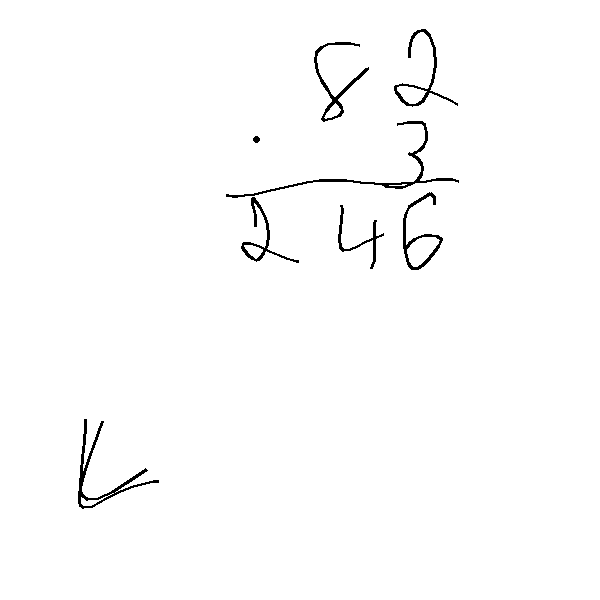 82
· 3
246